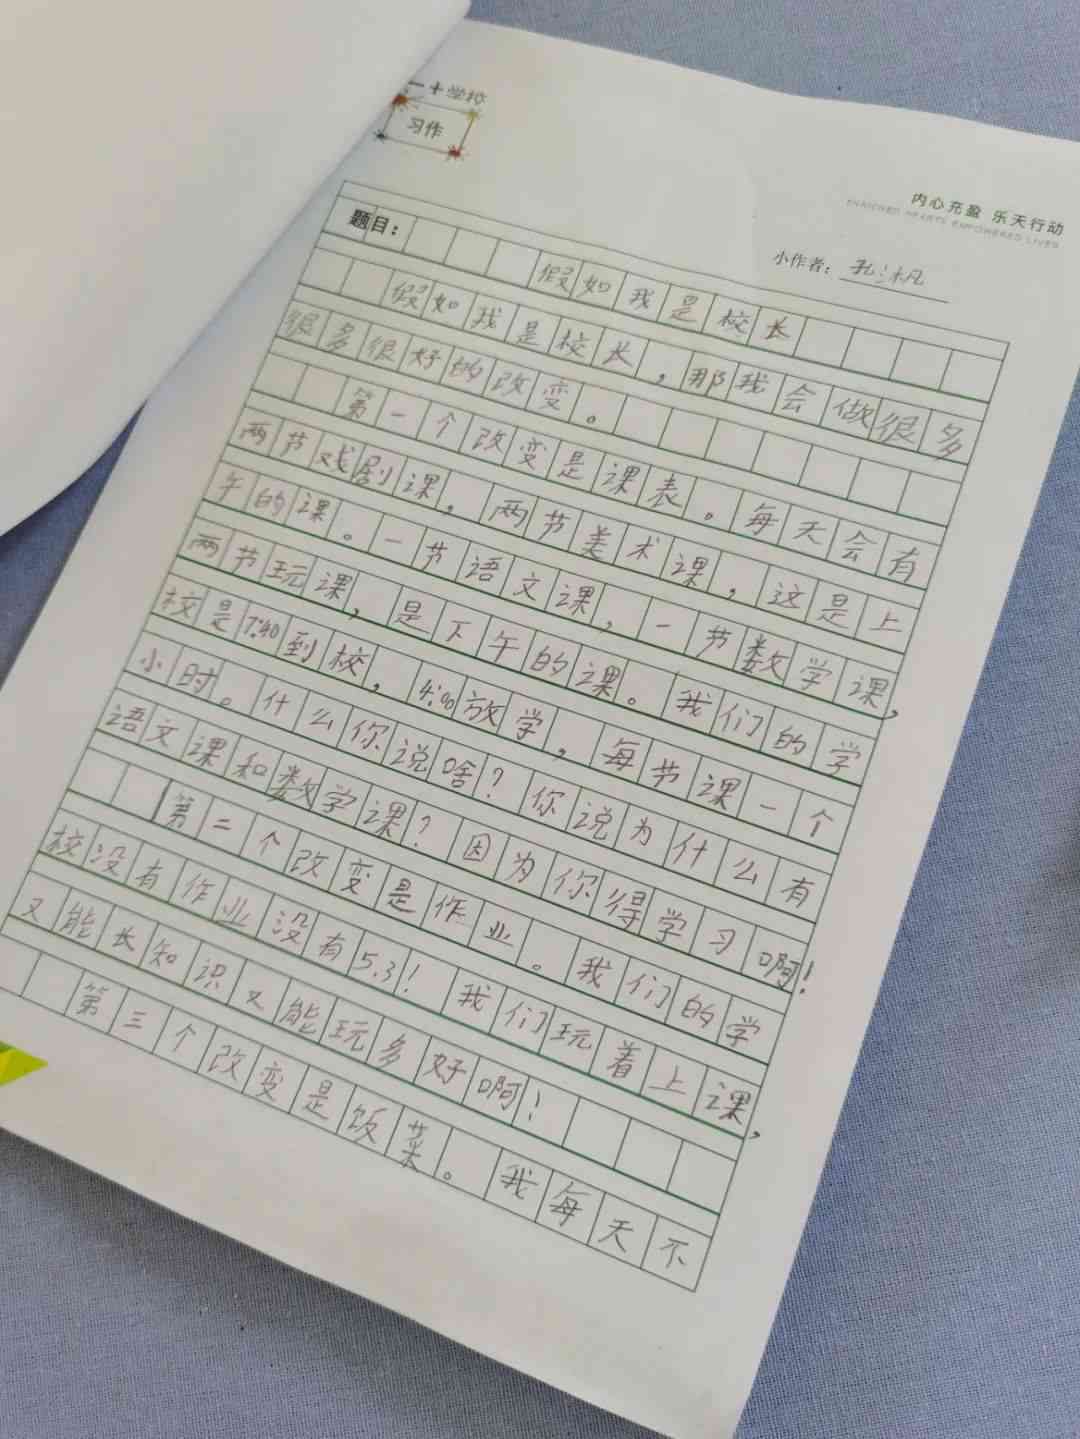 一十学校
习作
内心充盈 乐天行动
ENRICHED HEARTS EMPOWERED LIVES
小作者：孔沙帆
题目：
假如我是校长
假如我是校长，那我会做很多
很多很好的改变。
第一个改变是课表。每天会有
两节戏剧课，两节美术课，这是上
午的课。一节语文课，一节数学课，
两节玩课，是下午的课。我们的学
校是7:40到校，4:00放学，每节课一个
小时。什么你说啥？你说为什么有
语文课和数学课？因为你得学习啊！
第二个改变是作业。我们的学
校没有作业没有5.3！我们玩着上课，
又能长知识又能玩多好啊！
第三个改变是饭菜。我每天不